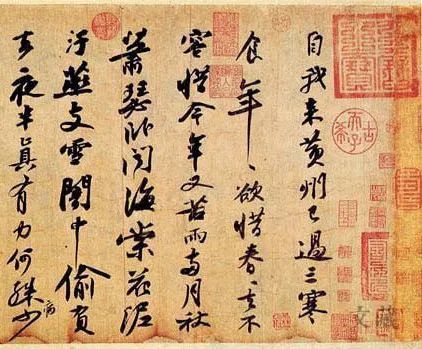 自我来黃州已過三寒
食年〻欲惜春〻去不
容惜今年又苦雨兩月秋
蕭瑟卧聞海棠花泥
汙燕支雪闇中偷負
去夜半真有力何殊少
病
古希天子
文藏